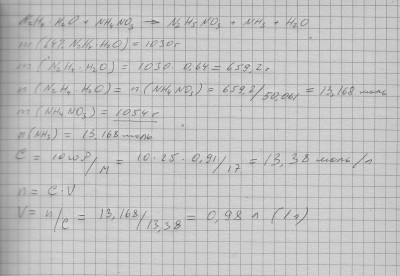 N₂H₄·H₂O + NH₄NO₃ → N₂H₅NO₃ + NH₃ + H₂O
m (64% N₂H₄·H₂O) = 1030 г
m (N₂H₄·H₂O) = 1030 · 0,64 = 659,2 г
n (N₂H₄·H₂O) = n (NH₄NO₃) = 659,2/50,061 = 13,168 моль
m (NH₄NO₃) = 1054 г
n(NH₃) = 13,168 моль
C = 10ωρ/M = 10·25·0,91/17 = 13,38 моль/л
n = C·V
V = n/C = 13,168/13,38 = 0,98 л (1 л)